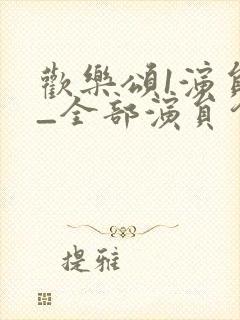 歡樂頌1演員
_全部演員
提雅